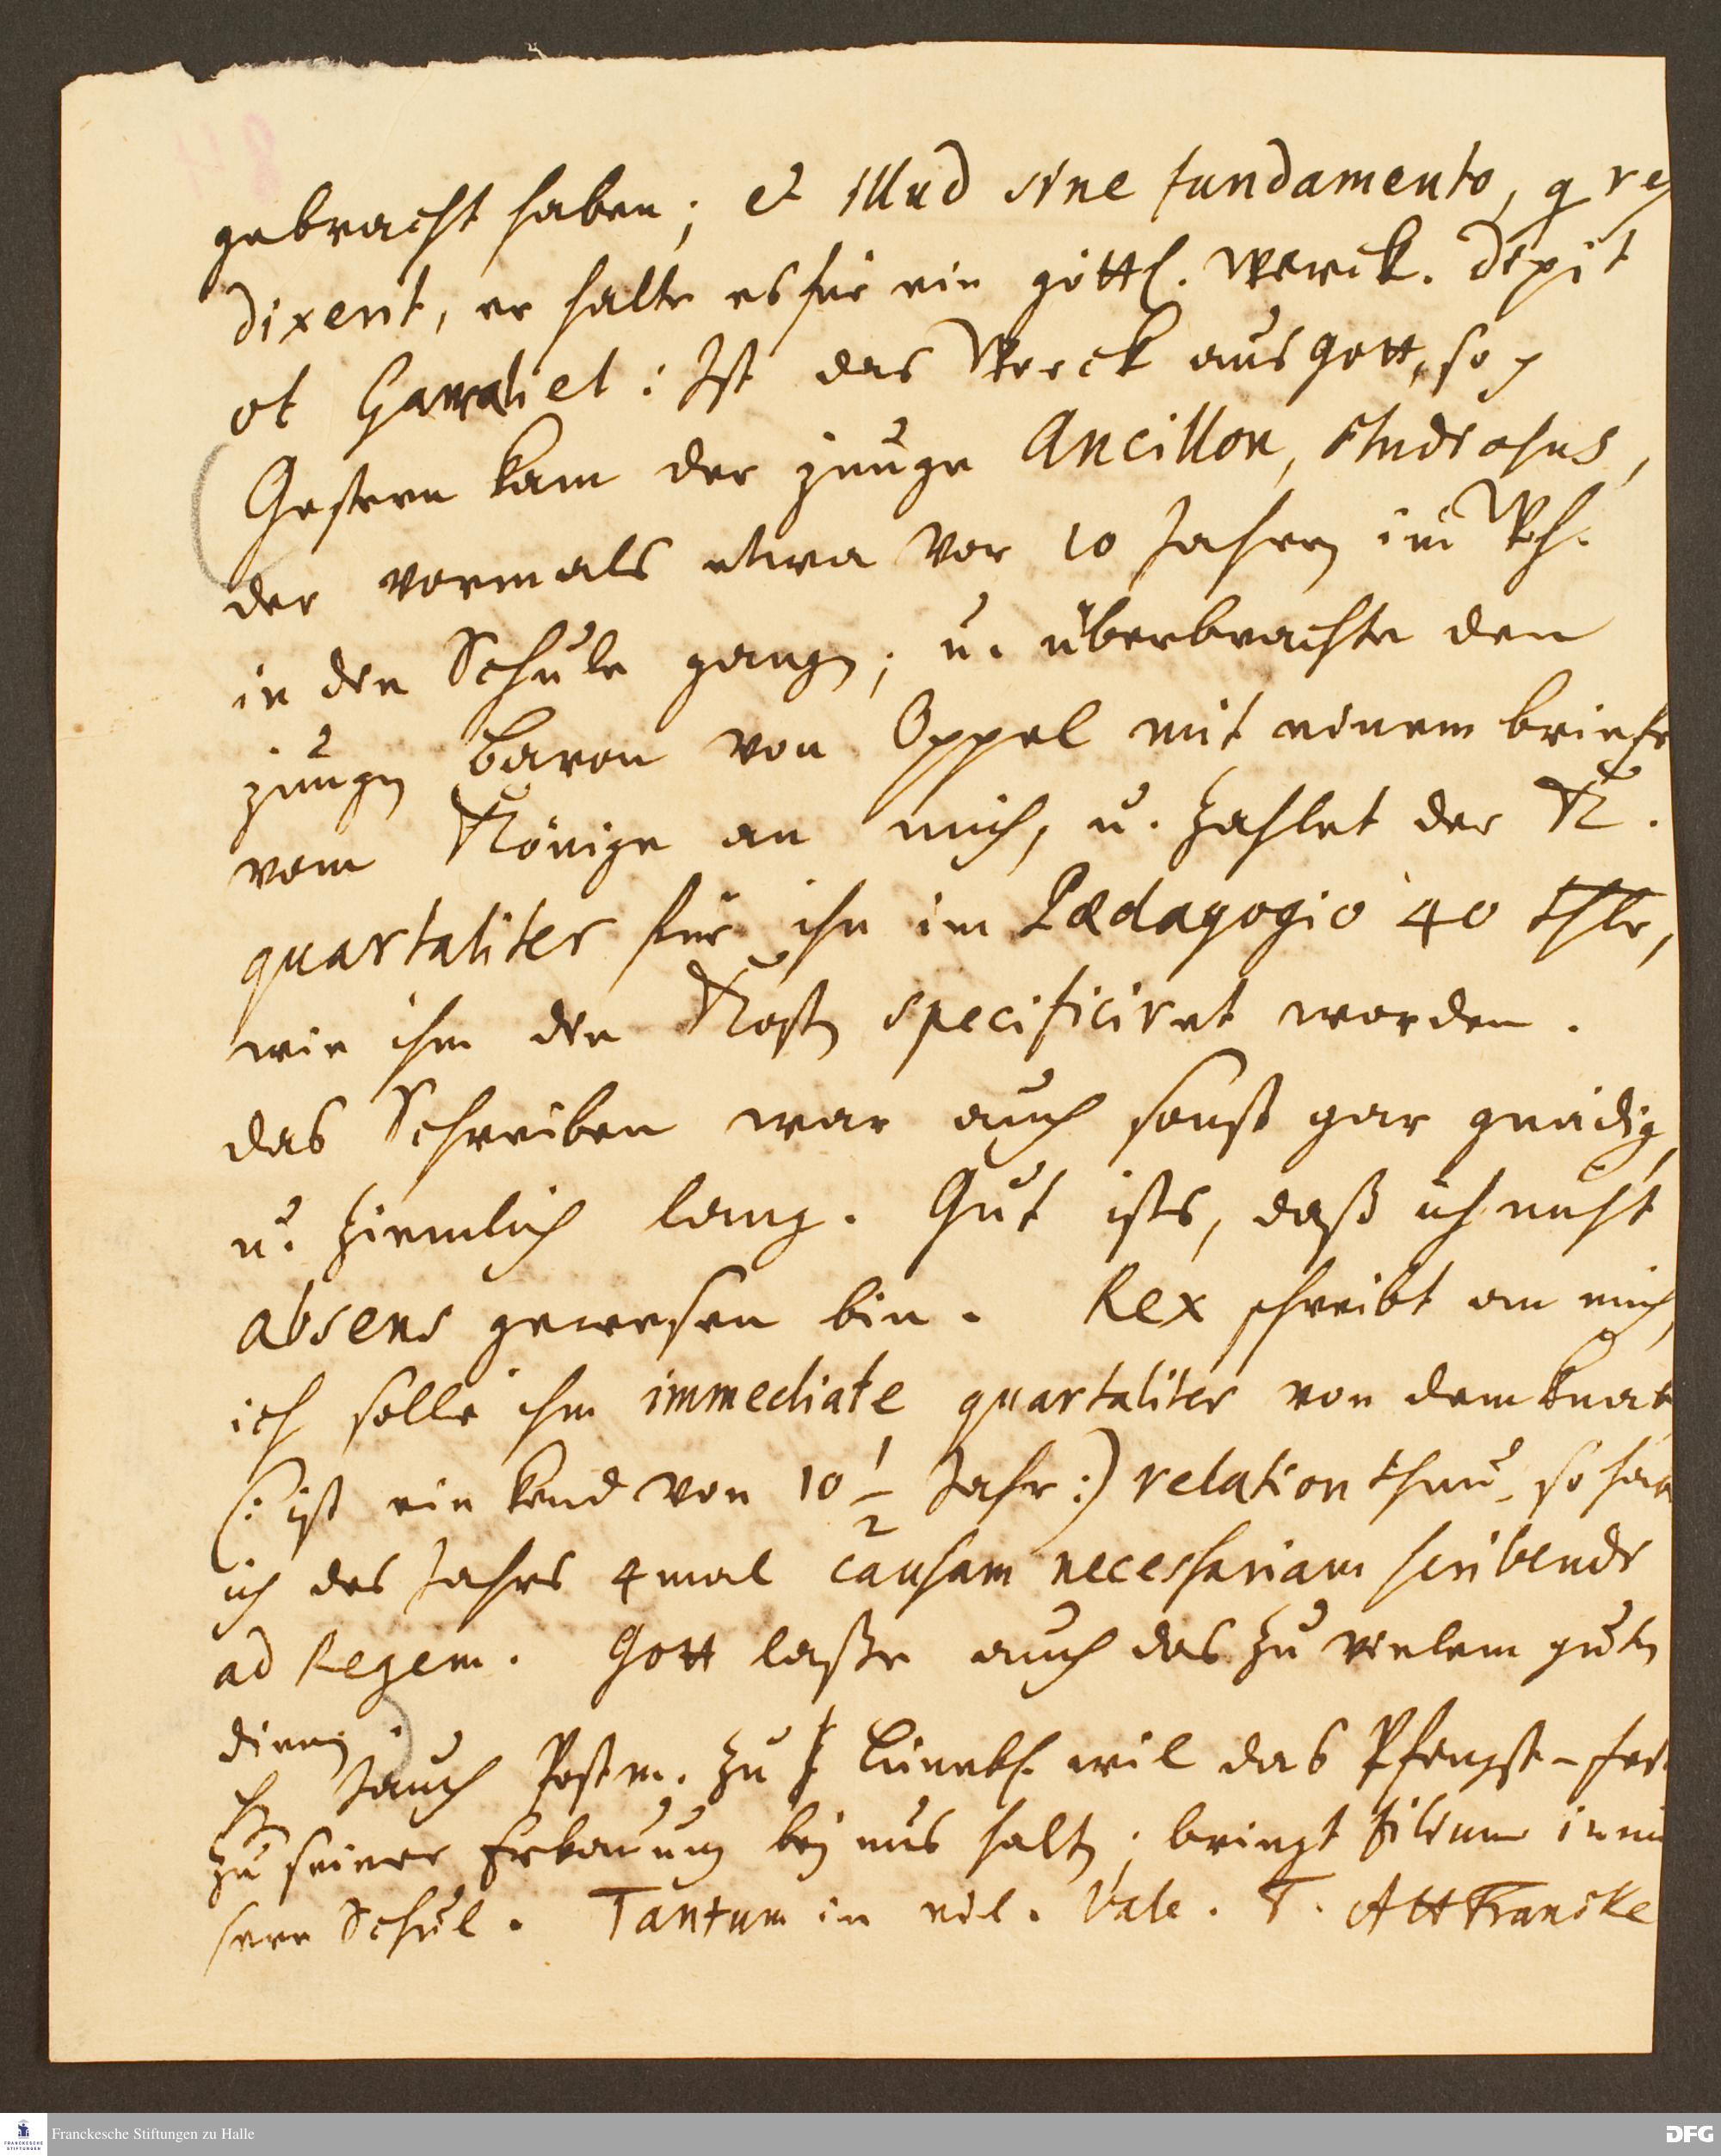 gebracht haben; et illud sine fundamento, q rex
dixerit, er halte es für ein göttl. Werck. dixit
ot Gamaliel: Ist das Werck aus Gott, so p
Gestern kam der junge Ancillon, studiosus,
der vormals etwa vor 10 Jahren im Wh.
in die Schule gangen; u. überbrachte den
jungen Baron von Oppel mit einem briefe
vom Könige an mich, u. zahlet der K.
quartaliter für ihn im Pædagogio 40 thlr,
wie ihm die Kosten specificiret worden.
das Schreiben war auch sonst gar gnädig,
u. ziemlich lang. Gut ists, daß ich nicht
absens gewesen bin. Rex schreibt an mich,
ich solle ihm immediate quartaliter von dem knab
(: ist ein kind von 10 1/2 Jahr:) relation thun, so hab
ich des Jahrs 4mal causam necessariam scribendi
ad Regem. Gott laße auch das zu vielem guten
dienen.
H. Jauch Postm. zu Lüneb. wil das Pfingst-fest
zu seiner Erbauung bey uns halten; bringt filium in un
sere Schul. Tantum in Vale. T. AHFrancke
Franckesche Stiftungen zu Halle
FRANCKESCHE
STIFTUNGEN
DFG